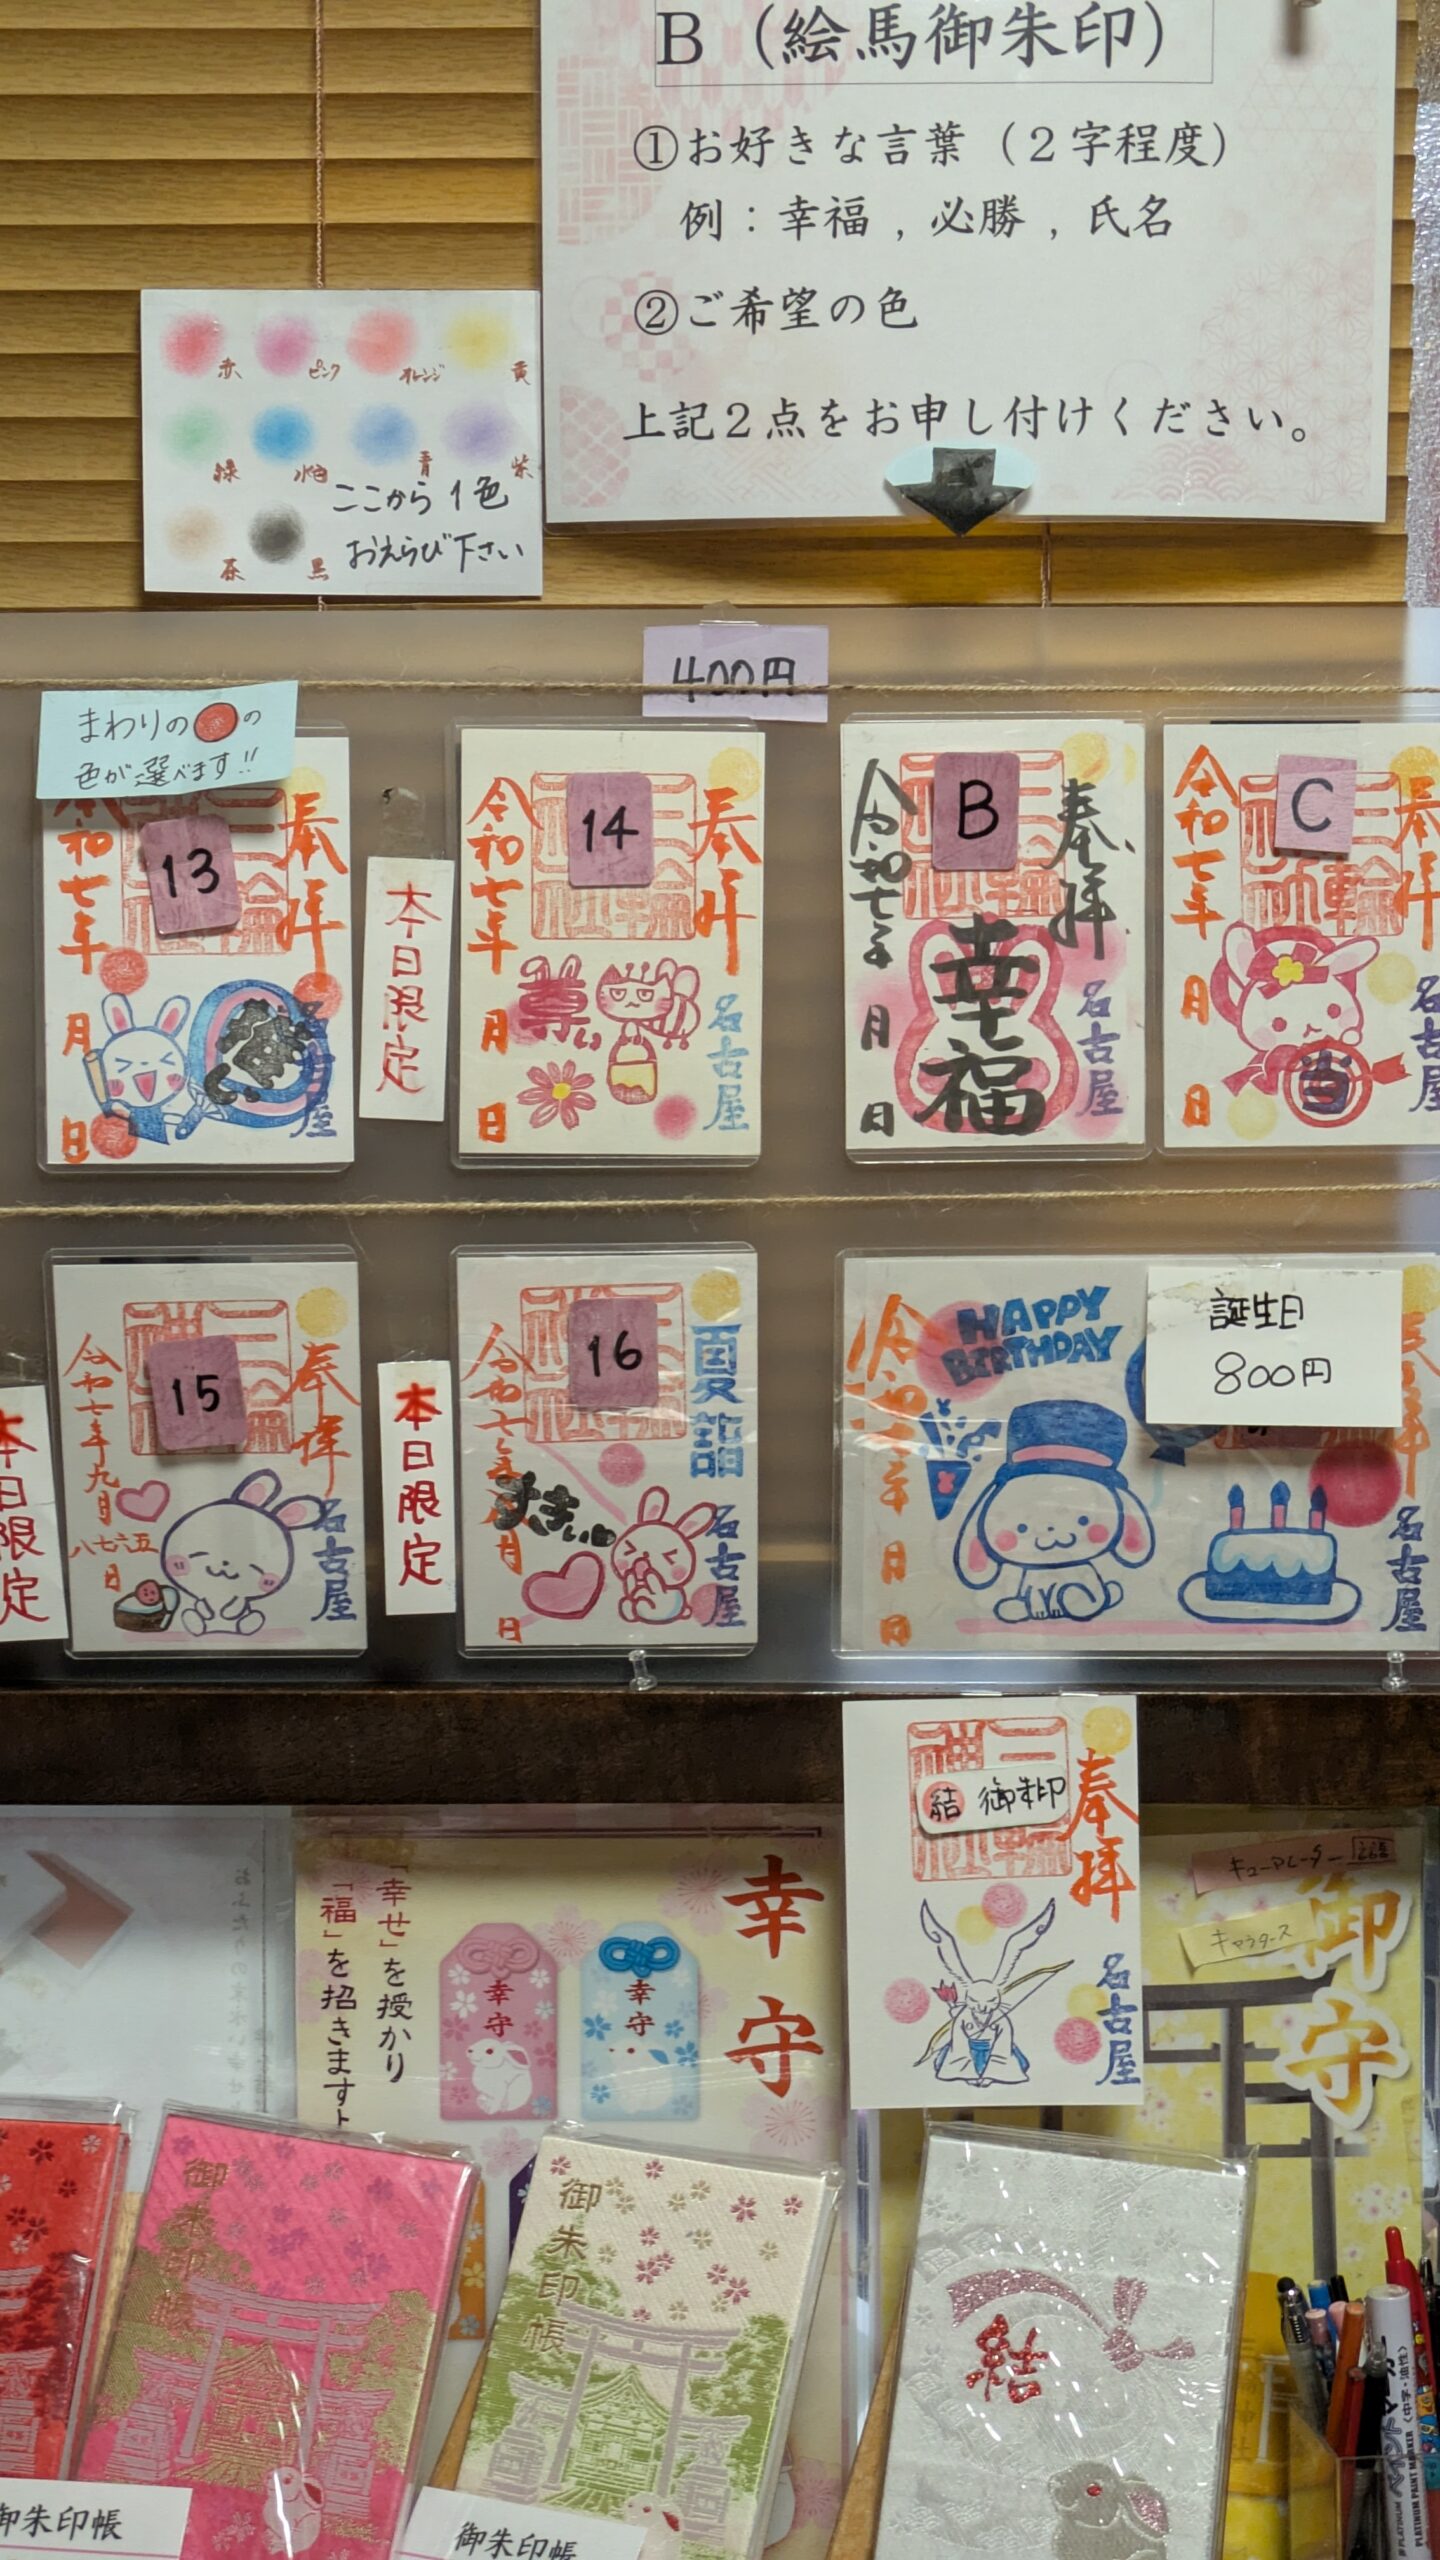 B（絵馬御朱印）
①お好きな言葉（２字程度）
例：幸福，必勝，氏名
②ご希望の色
上記２点をお申し付けください。
赤 ピンク オレンジ 黄
緑 水色 青 紫
茶 黒
ここから1色
おえらび下さい
400円
まわりの●の
色が選べます!!
13
奉拝
令和七年
月
日
名古屋
本日限定
14
奉拝
令和七年
月
日
尊い
名古屋
B
奉拝
令和七年
月
日
幸福
名古屋
C
奉拝
令和七年
月
日
当
名古屋
本日限定
15
奉拝
令和七年九月
八七六五
日
名古屋
本日限定
16
夏詣
令和七年
月
日
すきぃ
名古屋
HAPPY
BIRTHDAY
誕生日
800円
令和七年
月
日
名古屋
結 御朱印
奉拝
名古屋
幸守
「幸せ」を授かり
「福」を招きます
幸守
幸守
キューマレーター
キャラクターズ
御守
御朱印帳
御朱印帳
結
御朱印帳
御朱印帳
ペイントマーカー
（中字・油性）
PLATINUM PAINT MARKER